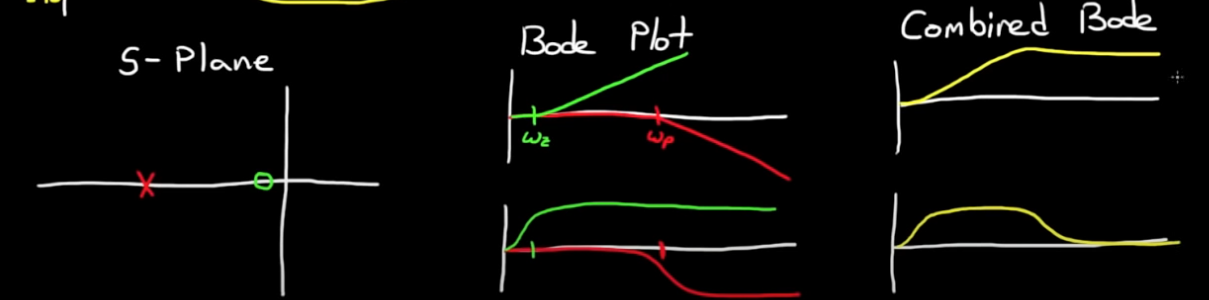 S-Plane
Bode Plot
Combined Bode
ωz
ωp